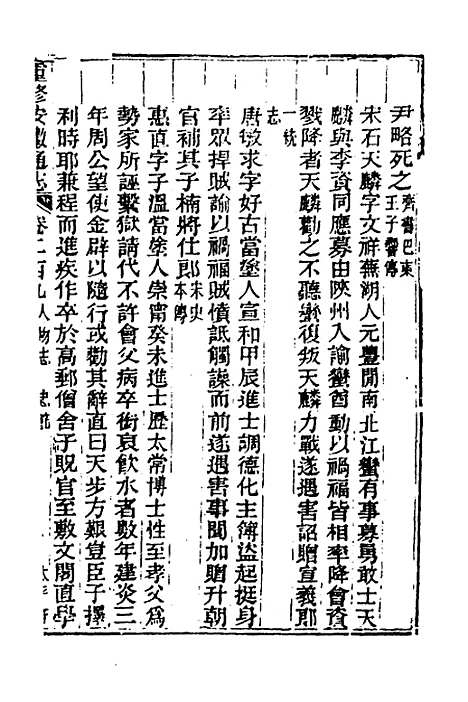 尹略死之齊書巴東王子響傳
宋石天麟字文祥蕪湖人元豐閒南北江蠻有事募勇敢士天
麟與李資同應募由陝州入諭蠻酋動以禍福皆相率降會資
戮降者天麟勸之不聽蠻復叛天麟力戰遂遇害詔贈宣義郎
一統志
唐敏求字好古當塗人宣和甲辰進士調德化主簿盜起挺身
率眾捍賊諭以禍福賊憤詆觸譟而前遂遇害事聞加贈升朝
官補其子楠將仕郎宋史本傳
惠直字子溫當塗人崇甯癸未進士歷太常博士性至孝父為
勢家所誣繫獄請代不許會父病卒銜哀飲水者數年建炎三
年周公望使金辟以隨行或勸其辭直曰天步方艱豈臣子擇
利時耶兼程而進疾作卒於高郵僧舍子貺官至敷文閣直學
重修安徽通志 卷二百九 人物志 忠節